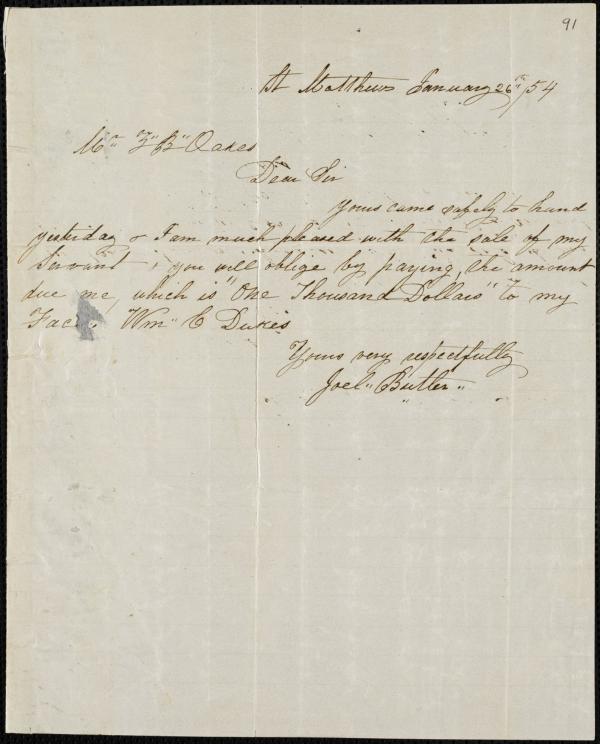 91
St Matthews January 26th/54
Mr Z" B" Oakes
Dear Sir
Yours came safely to hand
yesterday & I am much pleased with the sale of my
Servant, you will oblige by paying, the amount
due me, which is "One Thousand Dollars" to my
Wm" C Dukes
Yours very respectfully
Joel" Butler"